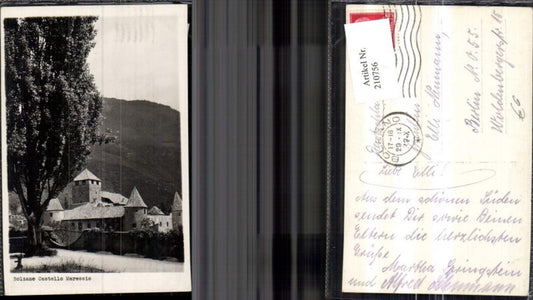 Bolzano Castello Mareccio
Artikel Nr.
210756
17-18
29.IX
Elli Lehmann,
Berlin N.O.55.
Woldenbergerstr. 15
Liebe Elli!
Aus dem schönen Süden
sendet Dir sowie Deinen
Eltern die herzlichsten
Grüße
Martha Springstein
und Alfred Lehmann